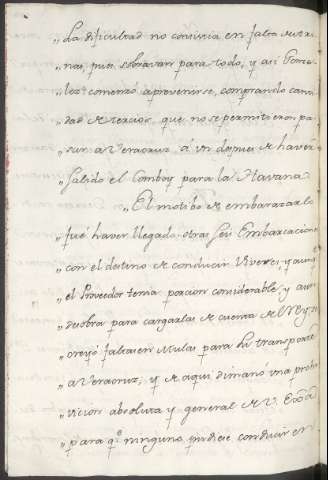 „La dificultad no consistia en falta de Ari
„nas, pues sobravan para todo, y asi Gonza
„lez comenzó aprevenirse, comprando canti
„dad de tercios, que no se permitieron pa
„sar a Veracruz, á un despues de haver
„salido el Comboy para la Havana.
„El motibo de embarazarlo
fué haver llegado otras seis Embarcacione
„con el destino de conducir Viveres, y aunq
„el Proveedor tenia porcion considerable, y aun
desobra para cargarlas de cuenta del Rey,
„creyó faltasen Mulas para su transporte
„a Veracruz, y de aqui dimanó una prohi
„vicion absoluta y general de V. Exca
„para qe ninguno pudiese conducir en